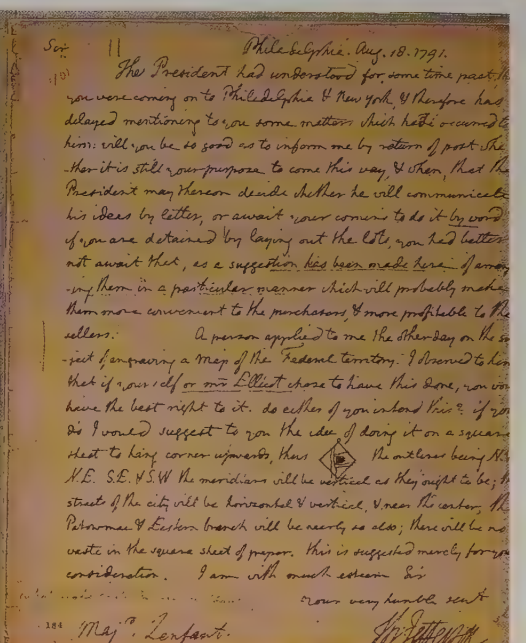 Sir Philadelphia. Aug. 18. 1791.
The President had understood for some time past,
you were coming on to Philadelphia & New york, & therefore has
delayed mentioning to you some matters which have occurred to
him: will you be so good as to inform me by return of post whe
-ther it is still your purpose to come this way, & when, that the
President may thereon decide whether he will communicate
his ideas by letter, or await your coming to do it by word
if you are detained by laying out the lots, you had better
not await that, as a suggestion has been made here of arrang
-ing them in a particular manner which will probably make
them more convenient to the purchasers, & more profitable to the
sellers. A person applied to me the other day on the su
-ject of engraving a Map of the Federal territory. I observed to him
that if yourself or mr Ellicot chose to have this done, you wou
have the best right to it. do either of you intend this? if you
do I would suggest to you the idea of doing it on a square
sheet to hang corner upwards, thus the outlines being N.W
N.E. S.E. & S.W the meridians will be vertical as they ought to be; th
streets of the city will be horizontal & vertical, & near the center, the
Patowmac & Eastern branch will be nearly so also; there will be no
waste in the square sheet of paper. this is suggested merely for you
consideration. I am with much esteem Sir
your very humble servt
184 Majr. Lenfant. Th: Jefferson